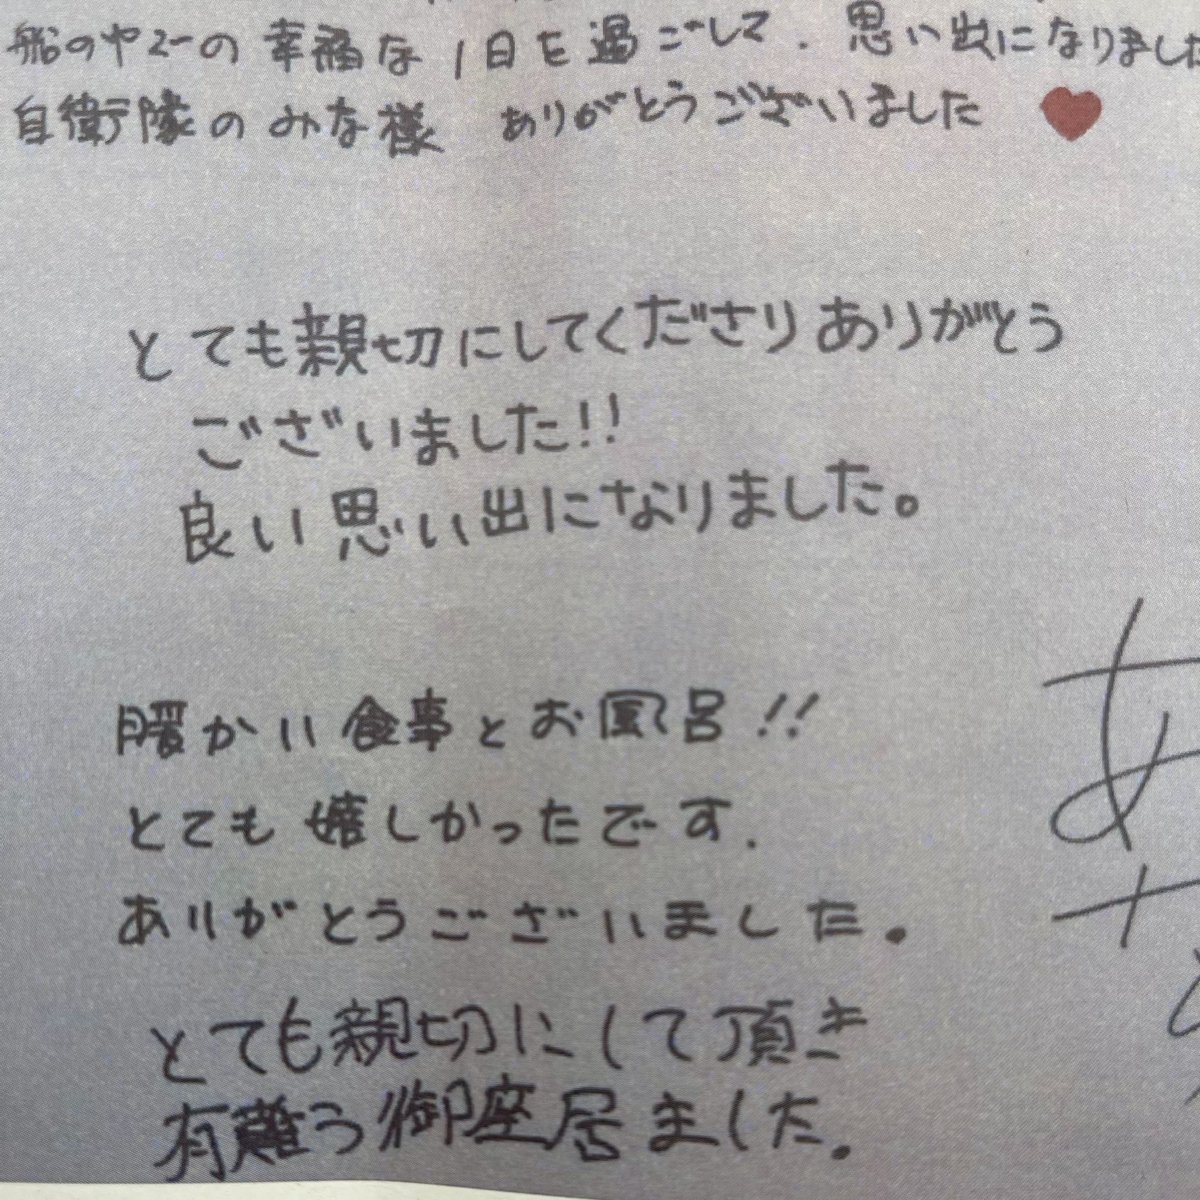 船のヤマーの幸福な1日を過ごして、思い出になりました
自衛隊のみな様 ありがとうございました
とても親切にしてくださりありがとう
ございました!!
良い思い出になりました。
暖かい食事とお風呂!!
とても嬉しかったです.
ありがとうございました.
とても親切にして頂き
有難う御座居ました.